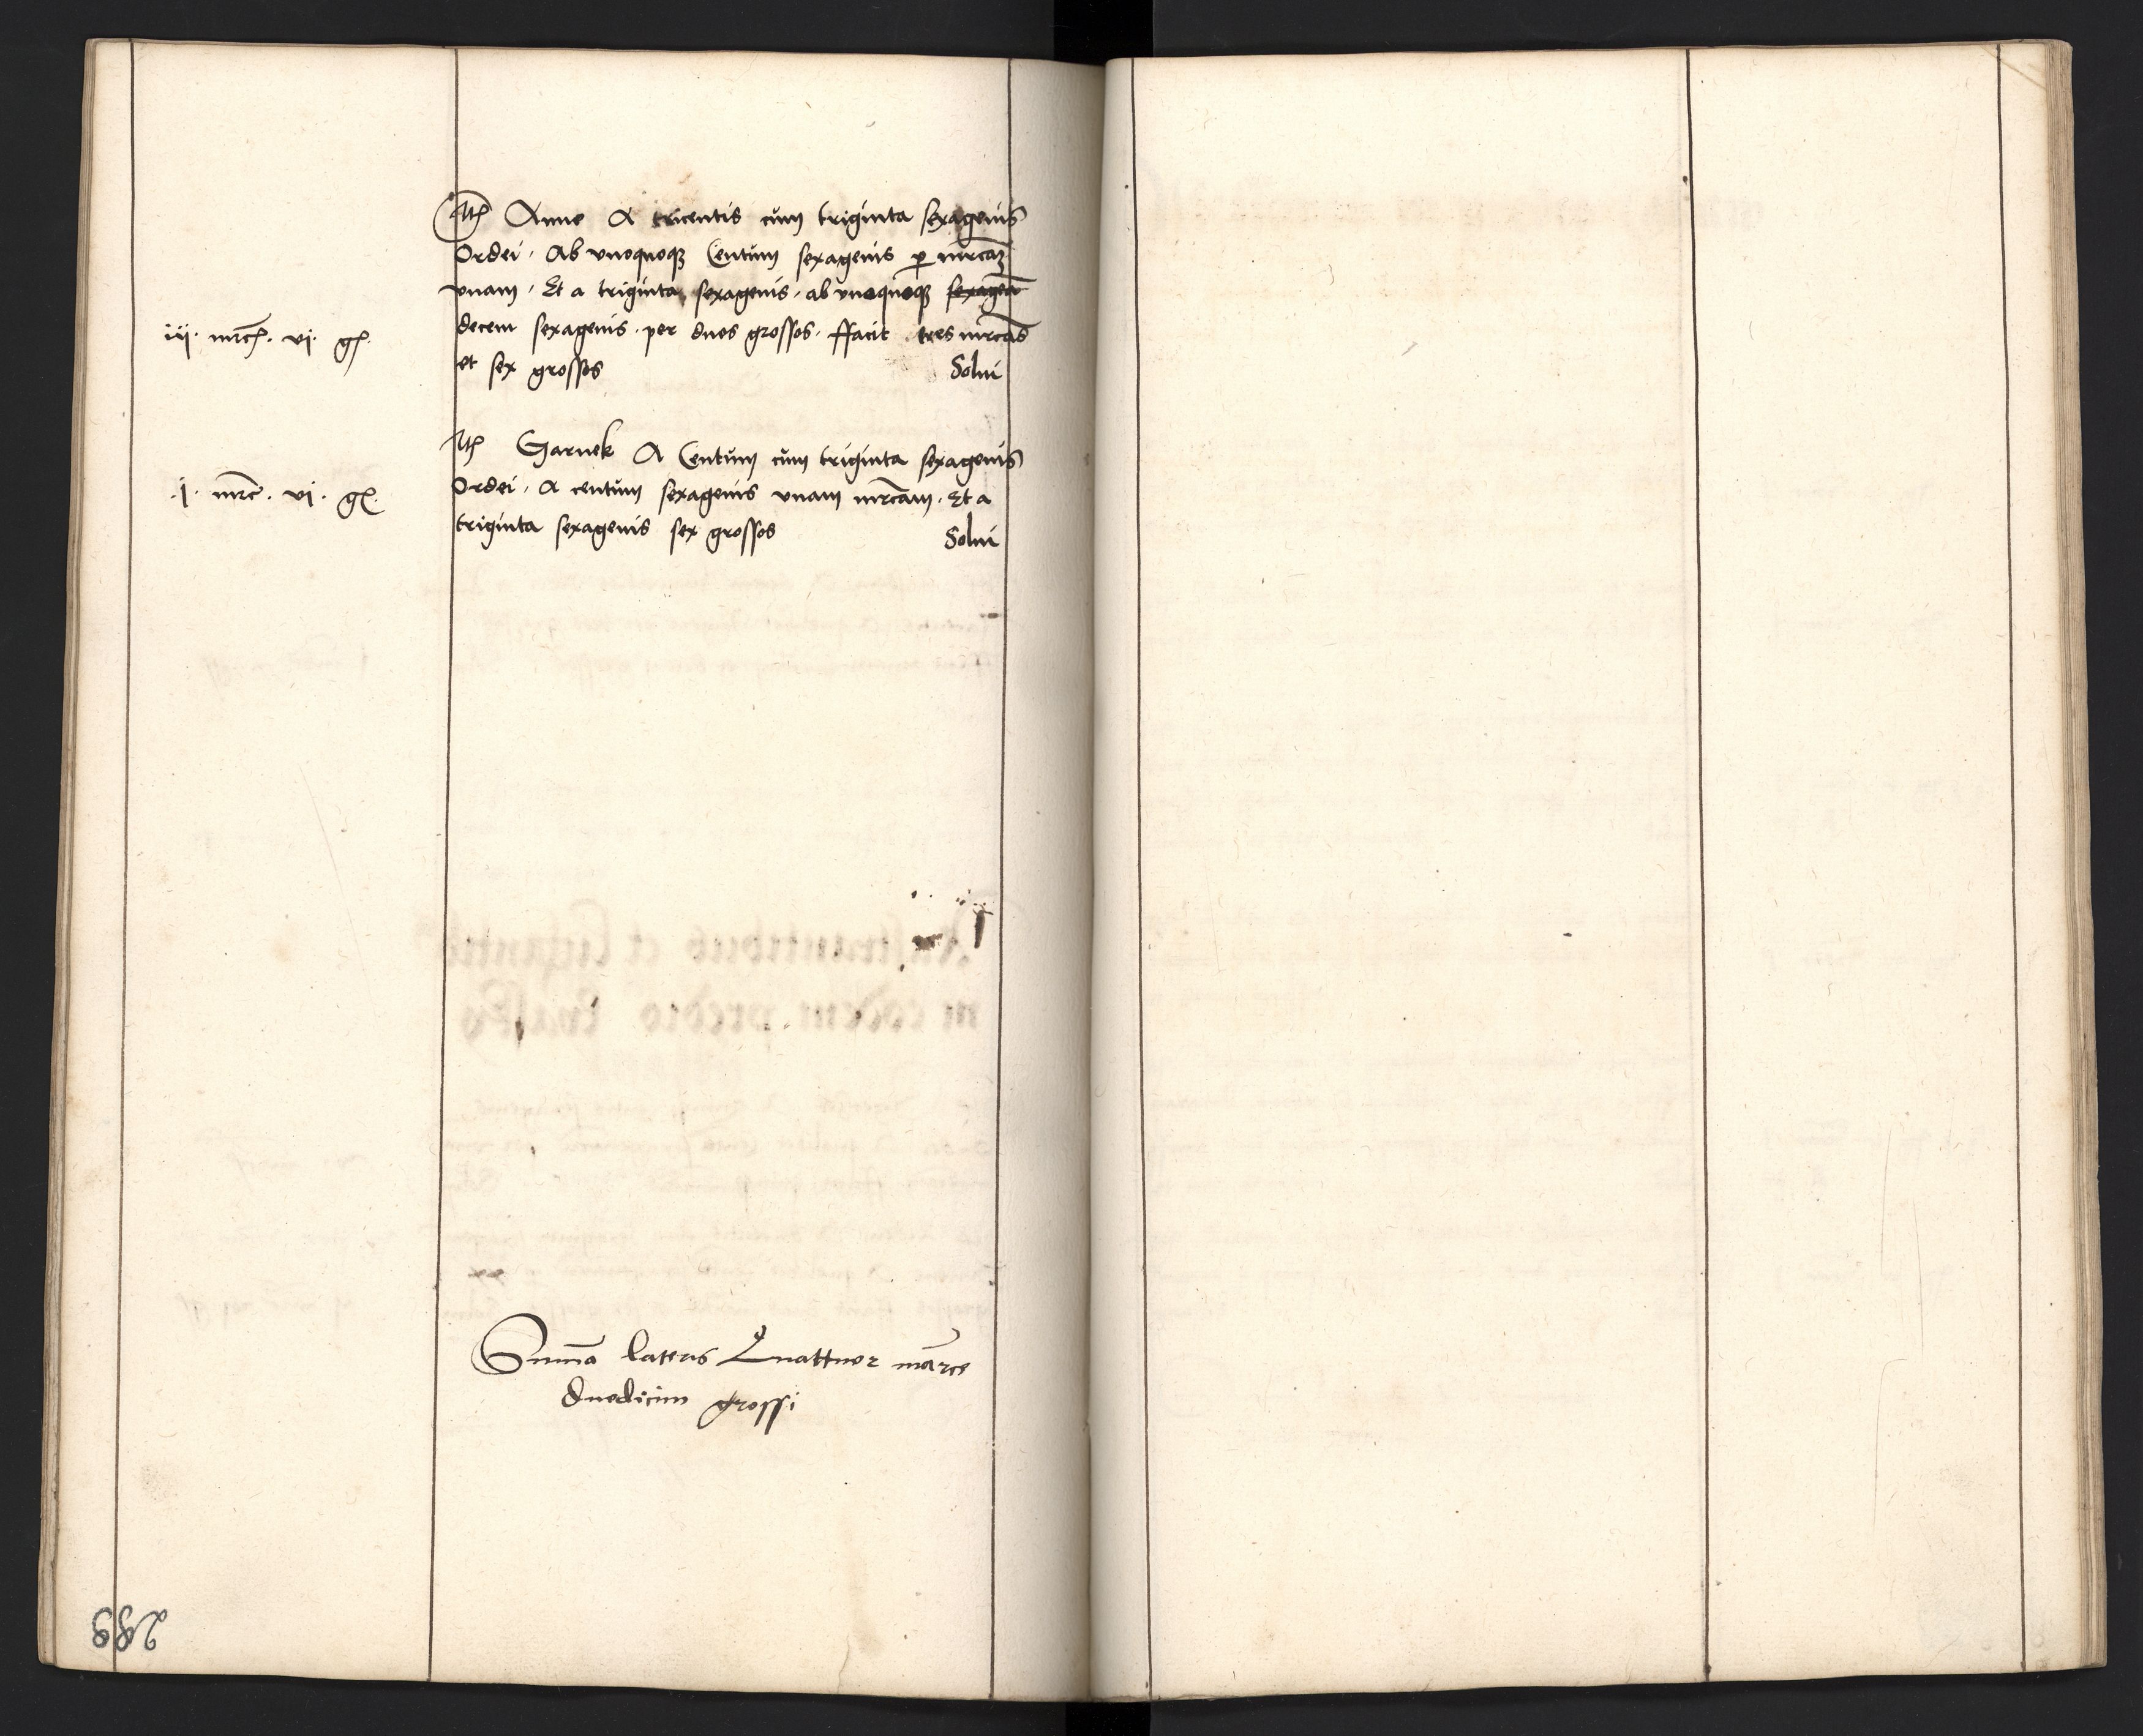 Itē Anne A tricentis cum triginta sexagenis
Ordei. Ab vnoquoqꝫ Centum sexagenis ꝑ mrcaꝫ
vnam. Et a triginta sexagenis. ab vnoquoqꝫ sexagena
decem sexagenis. per duos grossos. ffacit tres mrcas
iij. mrc. vi. gͬ.
et sex grossos Solui
Itē Garnek A Centum cum triginta sexagenis
Ordei. A centum sexagenis vnam mrcam. Et a
.j. mrc. vi. gͬ.
triginta sexagenis sex grossos Solui
Summa lateris Quattuor marce
duodicim grossi